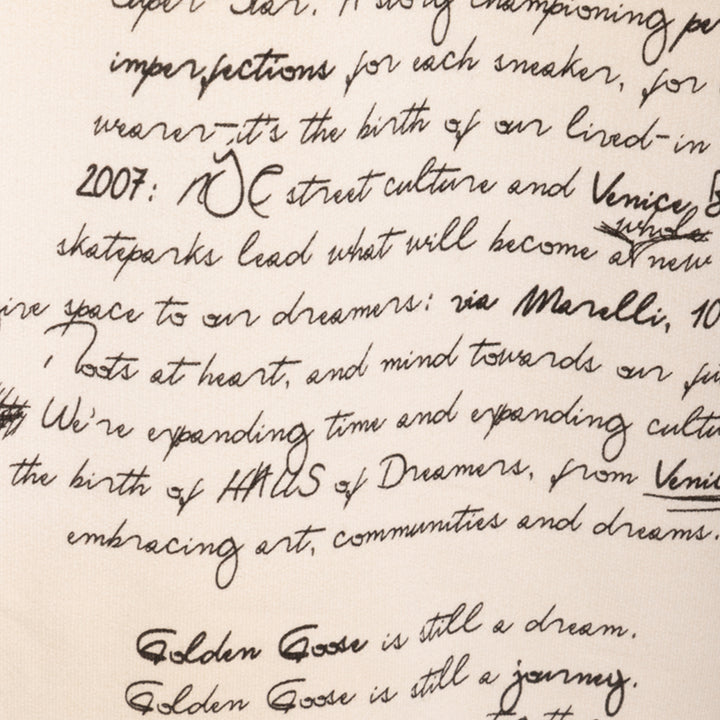 Super Star. A story championing
imperfections for each sneaker, for
wearer-it's the birth of our lived-in
2007: NYC street culture and Venice
whole
skateparks lead what will become a new
space to our dreamers: via Marelli, 10
Roots at heart, and mind towards our
We're expanding time and expanding
the birth of HAUS of Dreamers, from
embracing art, communities and dreams.
Golden Goose is still a dream.
Golden Goose is still a journey.